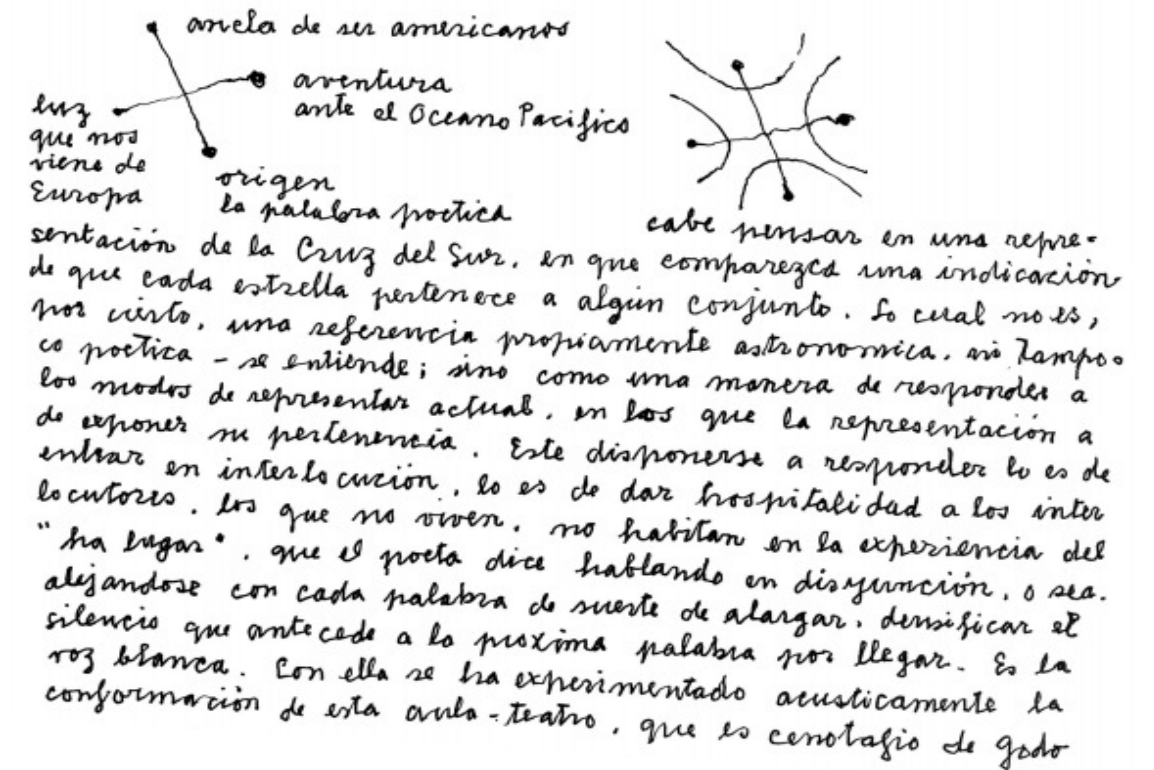 ancla de ser americanos
aventura
ante el Oceano Pacifico
luz
que nos
viene de
Europa
origen
la palabra poetica
cabe pensar en una repre-
sentación de la Cruz del Sur, en que comparezca una indicación
de que cada estrella pertenece a algún conjunto. Lo cual no es,
por cierto, una referencia propiamente astronomica, ni tampo-
co poetica - se entiende; sino como una manera de responder a
los modos de representar actual, en los que la representación a
de exponer su pertenencia. Este disponerse a responder lo es de
entrar en interlocución, lo es de dar hospitalidad a los inter
locutores, los que no viven, no habitan en la experiencia del
"ha lugar", que el poeta dice hablando en disyunción, o sea,
alejandose con cada palabra de suerte de alargar, densificar el
silencio que antecede a la proxima palabra por llegar. Es la
voz blanca. Con ella se ha experimentado acusticamente la
conformación de esta aula-teatro, que es cenotafio de godo